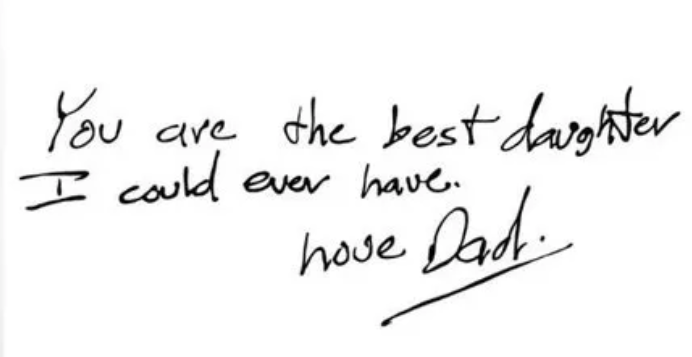 You are the best daughter
I could ever have.
Love Dad.